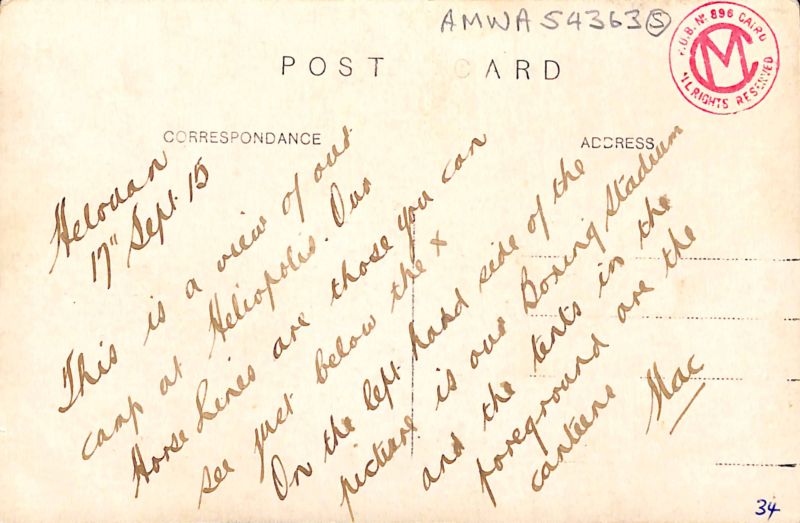 AMWA 54363 S
P.O.B. No 896 CAIRO
CM
ALL RIGHTS RESERVED
POST CARD
CORRESPONDANCE
ADDRESS
Helouan
17" Sept 15
This is a view of our
camp at Heliopolis. Our
Horse Lines are those you can
see just below the x
On the left hand side of the
picture is our Boxing Stadium
and the tents in the
foreground are the
canteens Mac
34